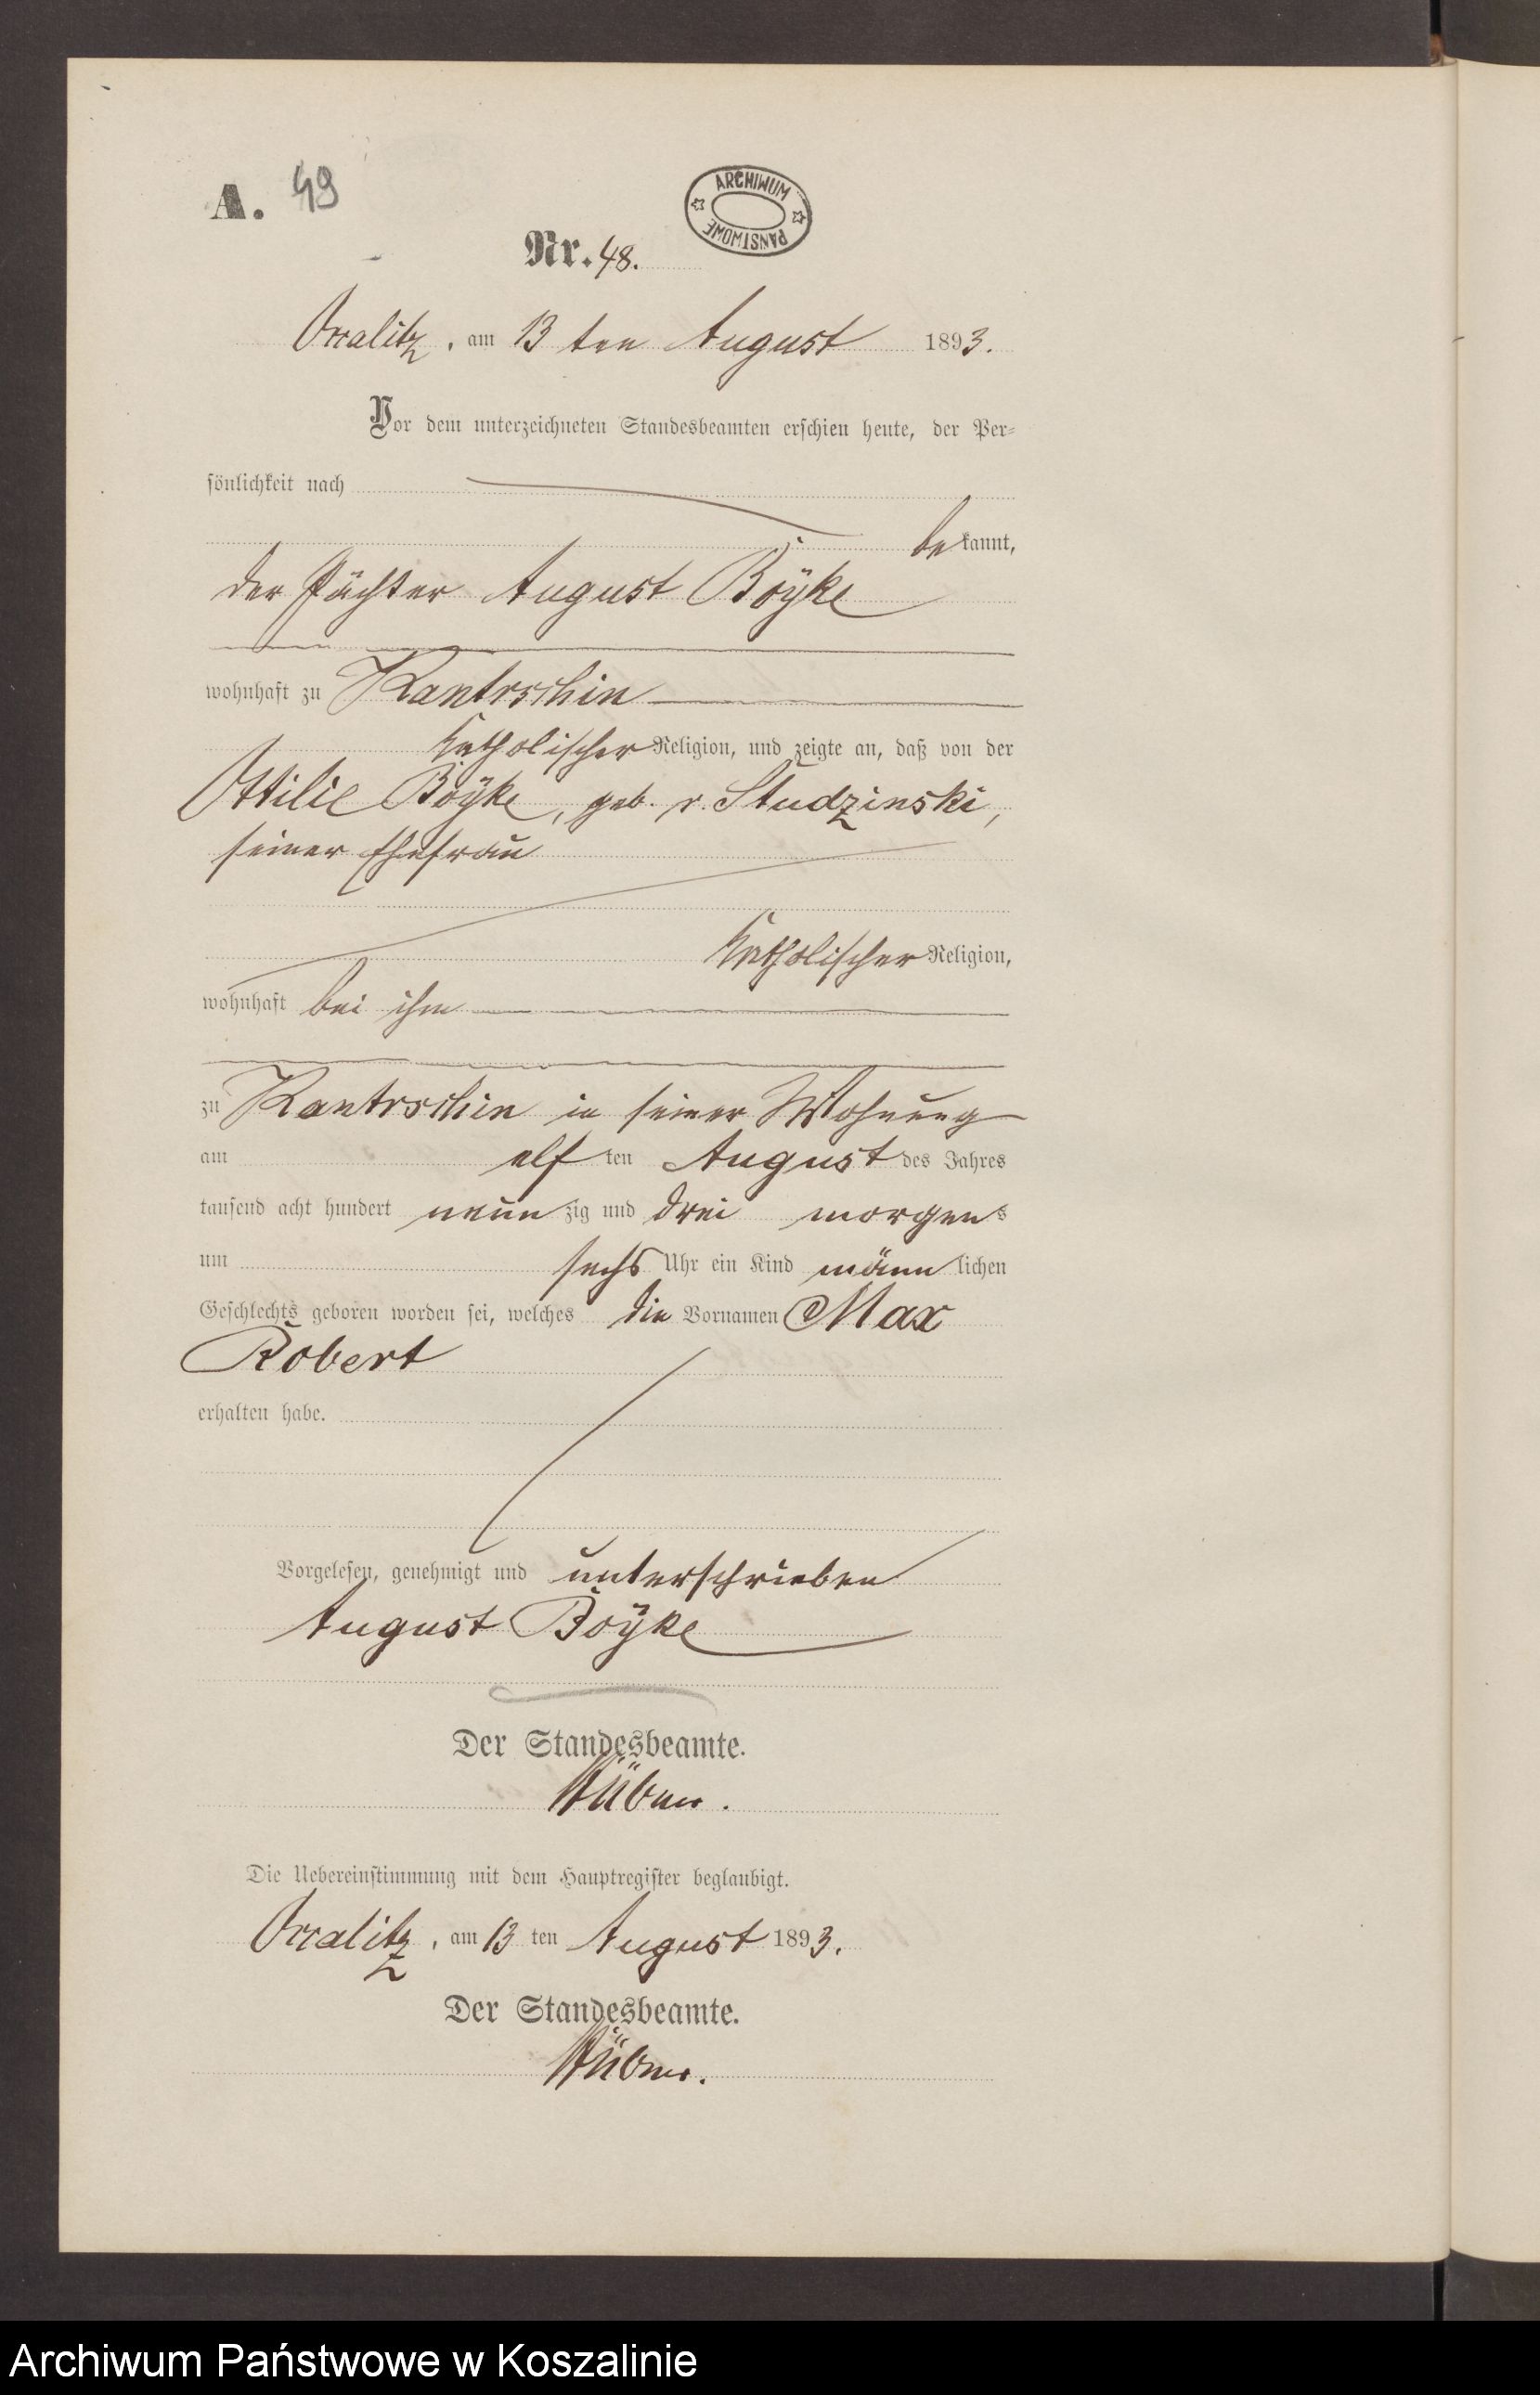 A. 49
ARCHIWUM
PAŃSTWOWE
Nr. 48.
Occalitz, am 13 ten August 1893.
Vor dem unterzeichneten Standesbeamten erschien heute, der Per-
sönlichkeit nach
bekannt,
der Pächter August Böÿke
wohnhaft zu Kantrschin
katholischer Religion, und zeigte an, daß von der
Ottilie Böÿke, geb. v. Studzinski,
seiner Ehefrau
katholischer Religion,
wohnhaft bei ihm
zu Kantrschin in seiner Wohnung
am elften August des Jahres
tausend acht hundert neunzig und drei morgens
um sechs Uhr ein Kind männlichen
Geschlechts geboren worden sei, welches die Vornamen Max
Robert
erhalten habe.
Vorgelesen, genehmigt und unterschrieben
August Böÿke
Der Standesbeamte.
Die Uebereinstimmung mit dem Hauptregister beglaubigt.
Occalitz, am 13 ten August 1893.
Der Standesbeamte.
Archiwum Państwowe w Koszalinie